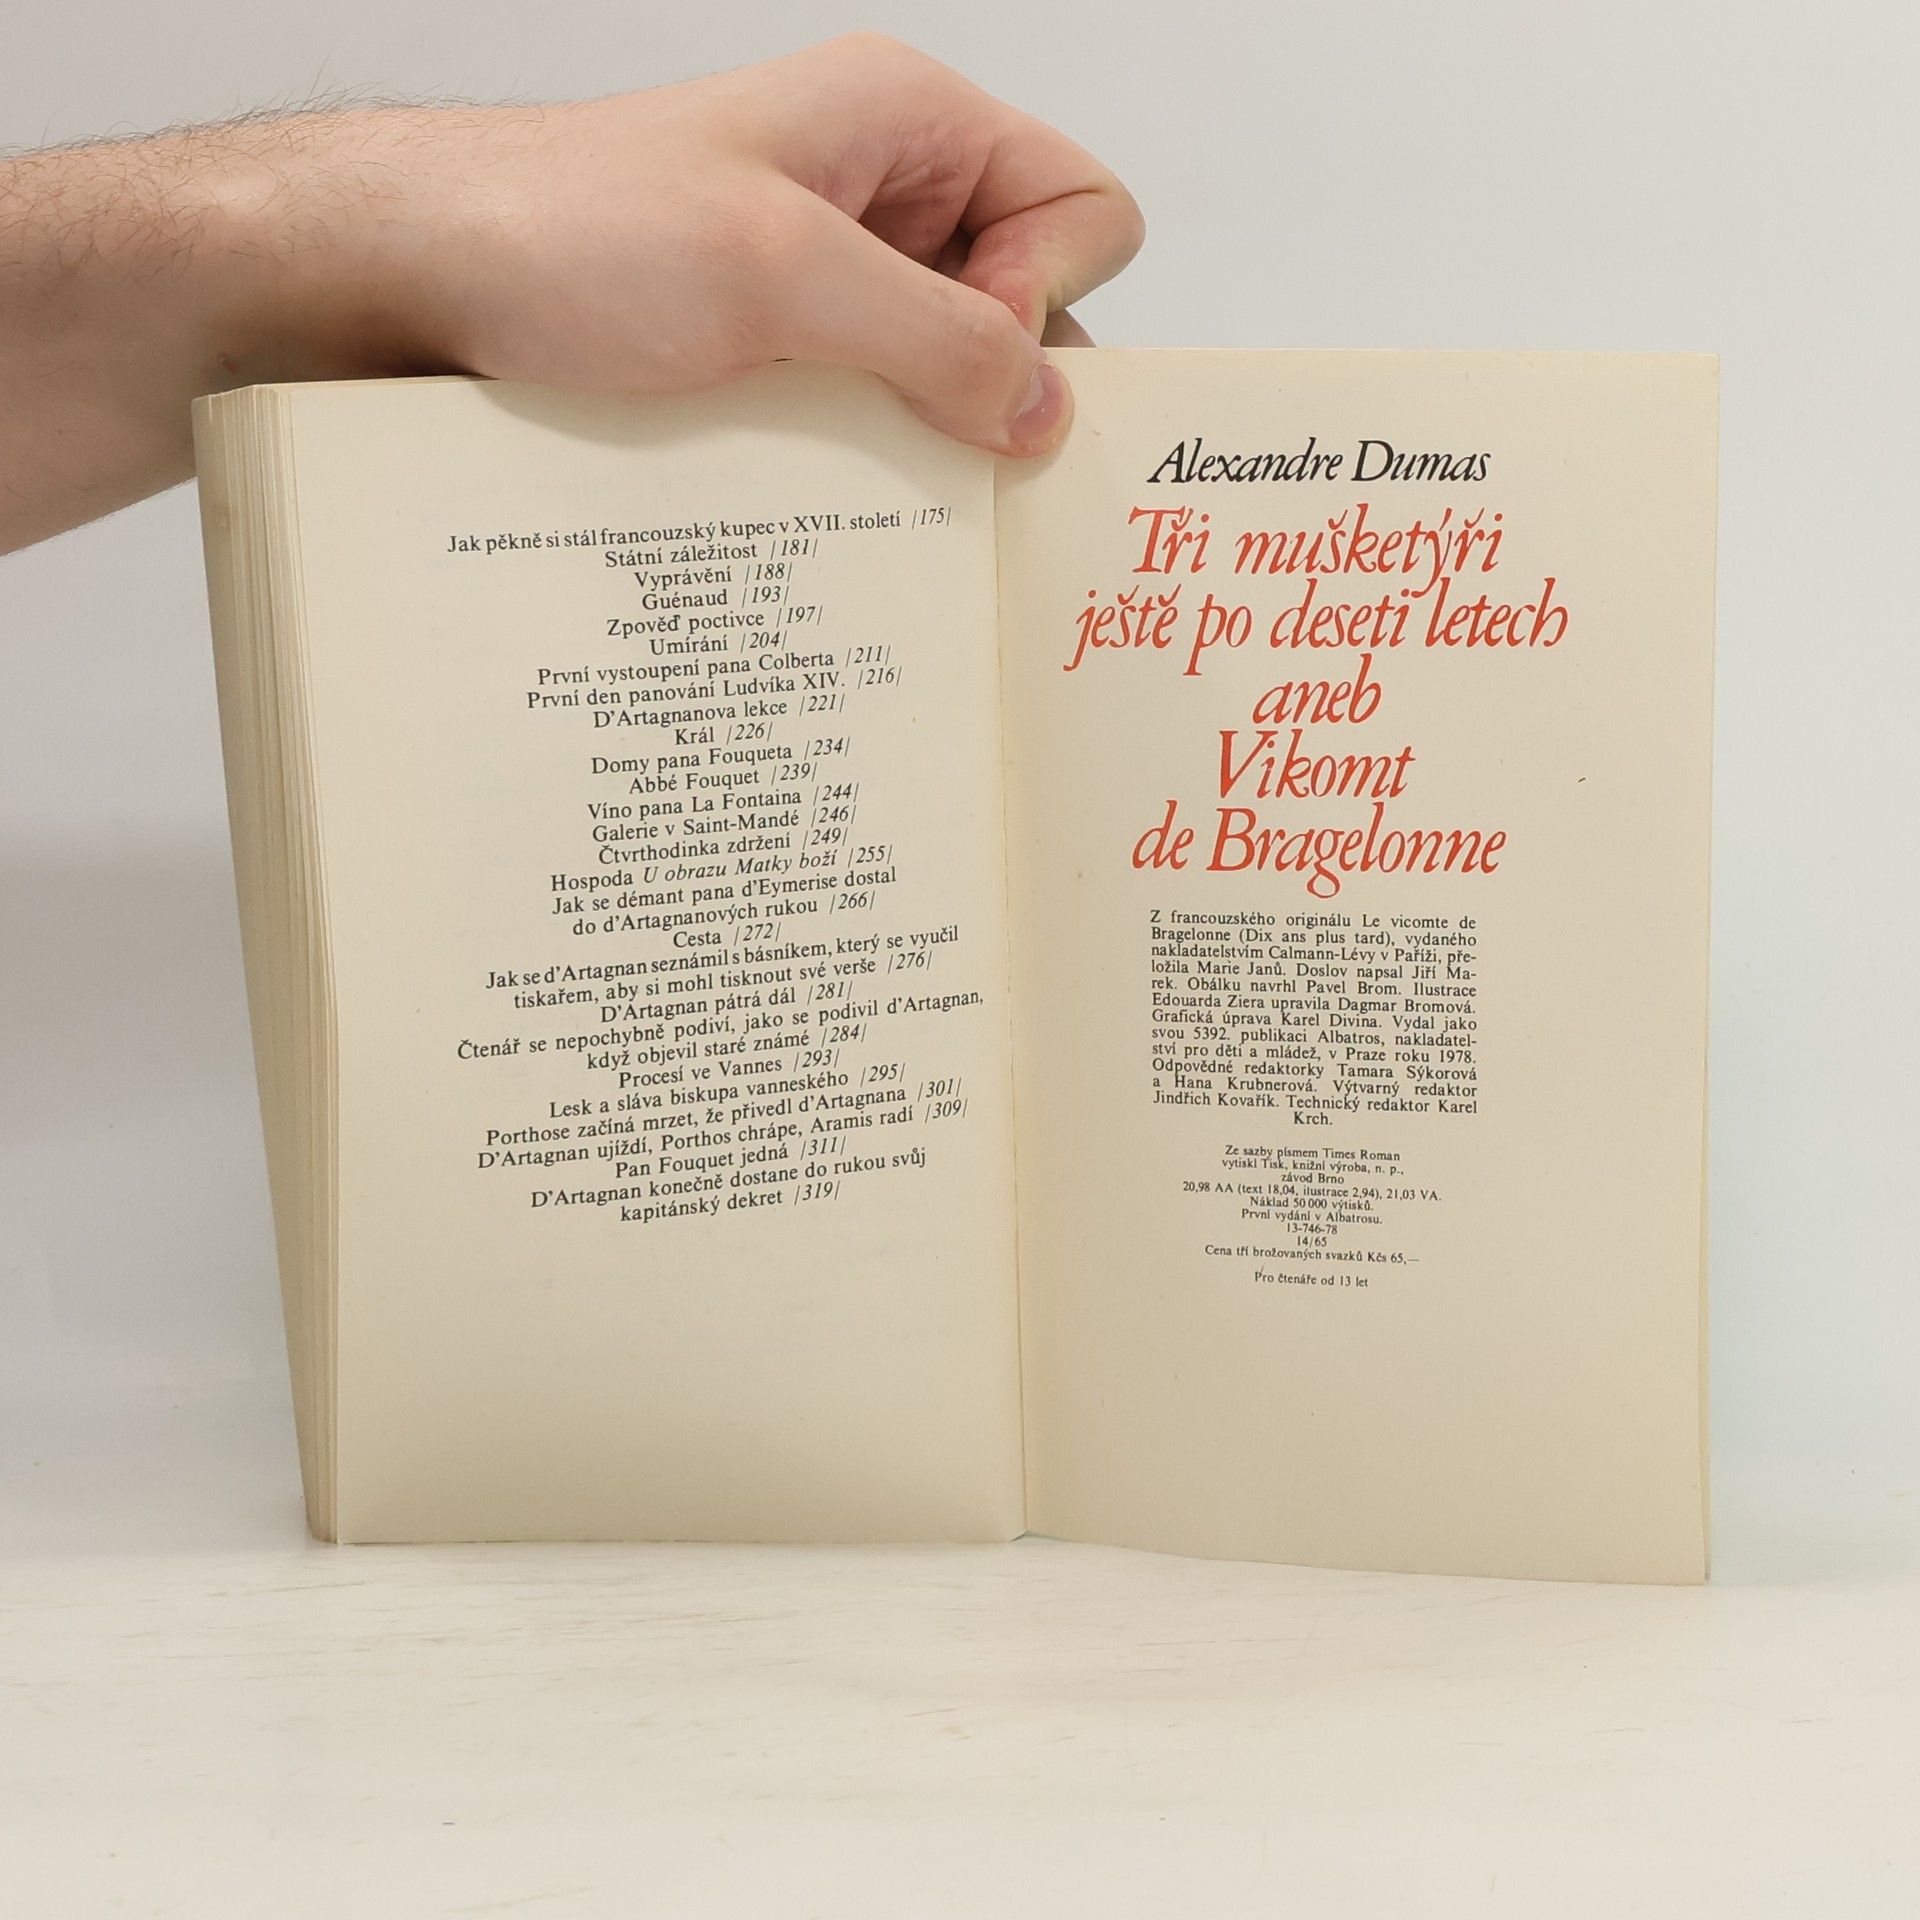 Jak pěkně si stál francouzský kupec v XVII. století /175/
Státní záležitost /181/
Vyprávění /188/
Guénaud /193/
Zpověď poctivce /197/
Umírání /204/
První vystoupení pana Colberta /211/
První den panování Ludvíka XIV. /216/
D'Artagnanova lekce /221/
Král /226/
Domy pana Fouqueta /234/
Abbé Fouquet /239/
Víno pana La Fontaina /244/
Galerie v Saint-Mandé /246/
Čtvrthodinka zdržení /249/
Hospoda U obrazu Matky boží /255/
Jak se démant pana d'Eymerise dostal
do d'Artagnanových rukou /266/
Cesta /272/
Jak se d'Artagnan seznámil s básníkem, který se vyučil
tiskařem, aby si mohl tisknout své verše /276/
D'Artagnan pátrá dál /281/
Čtenář se nepochybně podiví, jako se podivil d'Artagnan,
když objevil staré známé /284/
Procesí ve Vannes /293/
Lesk a sláva biskupa vanneského /295/
Porthose začíná mrzet, že přivedl d'Artagnana /301/
D'Artagnan ujíždí, Porthos chrápe, Aramis radí /309/
Pan Fouquet jedná /311/
D'Artagnan konečně dostane do rukou svůj
kapitánský dekret /319/
Alexandre Dumas
Tři mušketýři
ještě po deseti letech
aneb
Vikomt
de Bragelonne
Z francouzského originálu Le vicomte de
Bragelonne (Dix ans plus tard), vydaného
nakladatelstvím Calmann-Lévy v Paříži, pře-
ložila Marie Janů. Doslov napsal Jiří Ma-
rek. Obálku navrhl Pavel Brom. Ilustrace
Edouarda Ziera upravila Dagmar Bromová.
Grafická úprava Karel Divina. Vydal jako
svou 5392. publikaci Albatros, nakladatel-
ství pro děti a mládež, v Praze roku 1978.
Odpovědné redaktorky Tamara Sýkorová
a Hana Krubnerová. Výtvarný redaktor
Jindřich Kovařík. Technický redaktor Karel
Krch.
Ze sazby písmem Times Roman
vytiskl Tisk, knižní výroba, n. p.,
závod Brno
20,98 AA (text 18,04, ilustrace 2,94), 21,03 VA.
Náklad 50 000 výtisků.
První vydání v Albatrosu.
13-746-78
14/65
Cena tří brožovaných svazků Kčs 65,—
Pro čtenáře od 13 let